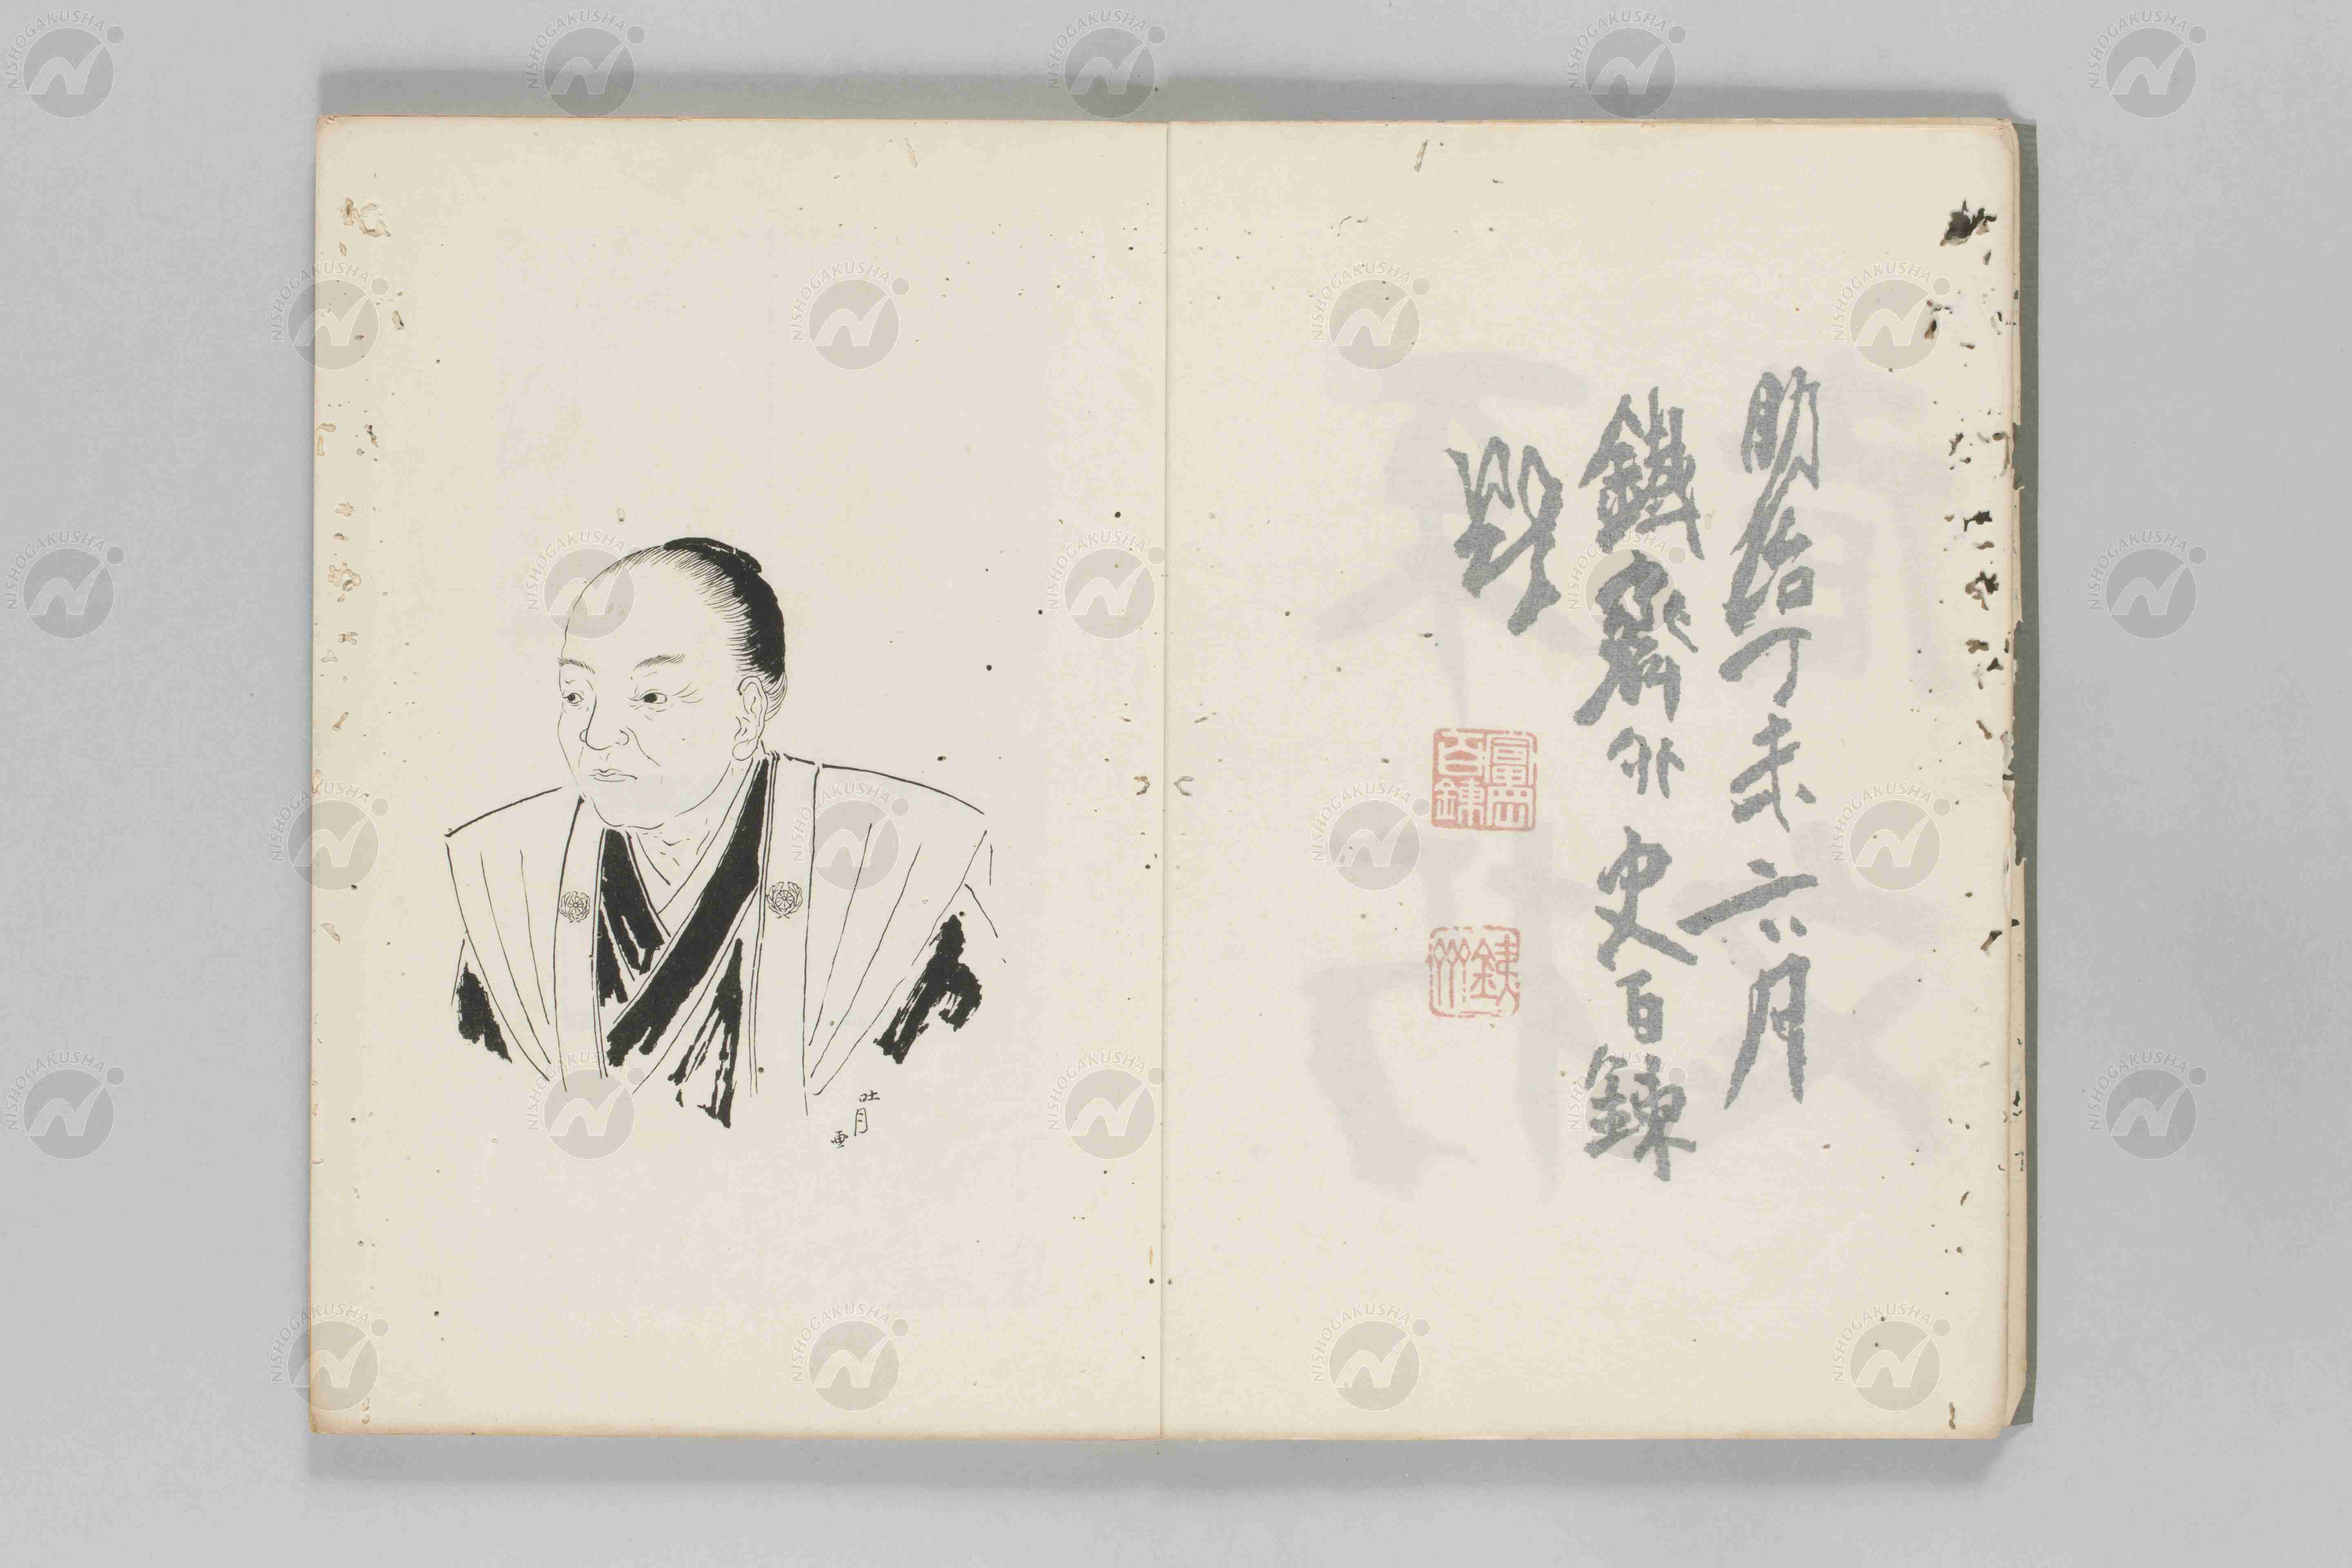 明治丁未六月
鐵齋外史百鍊
題
富岡百鍊
鐵
吐月
画
NISHOGAKUSHA